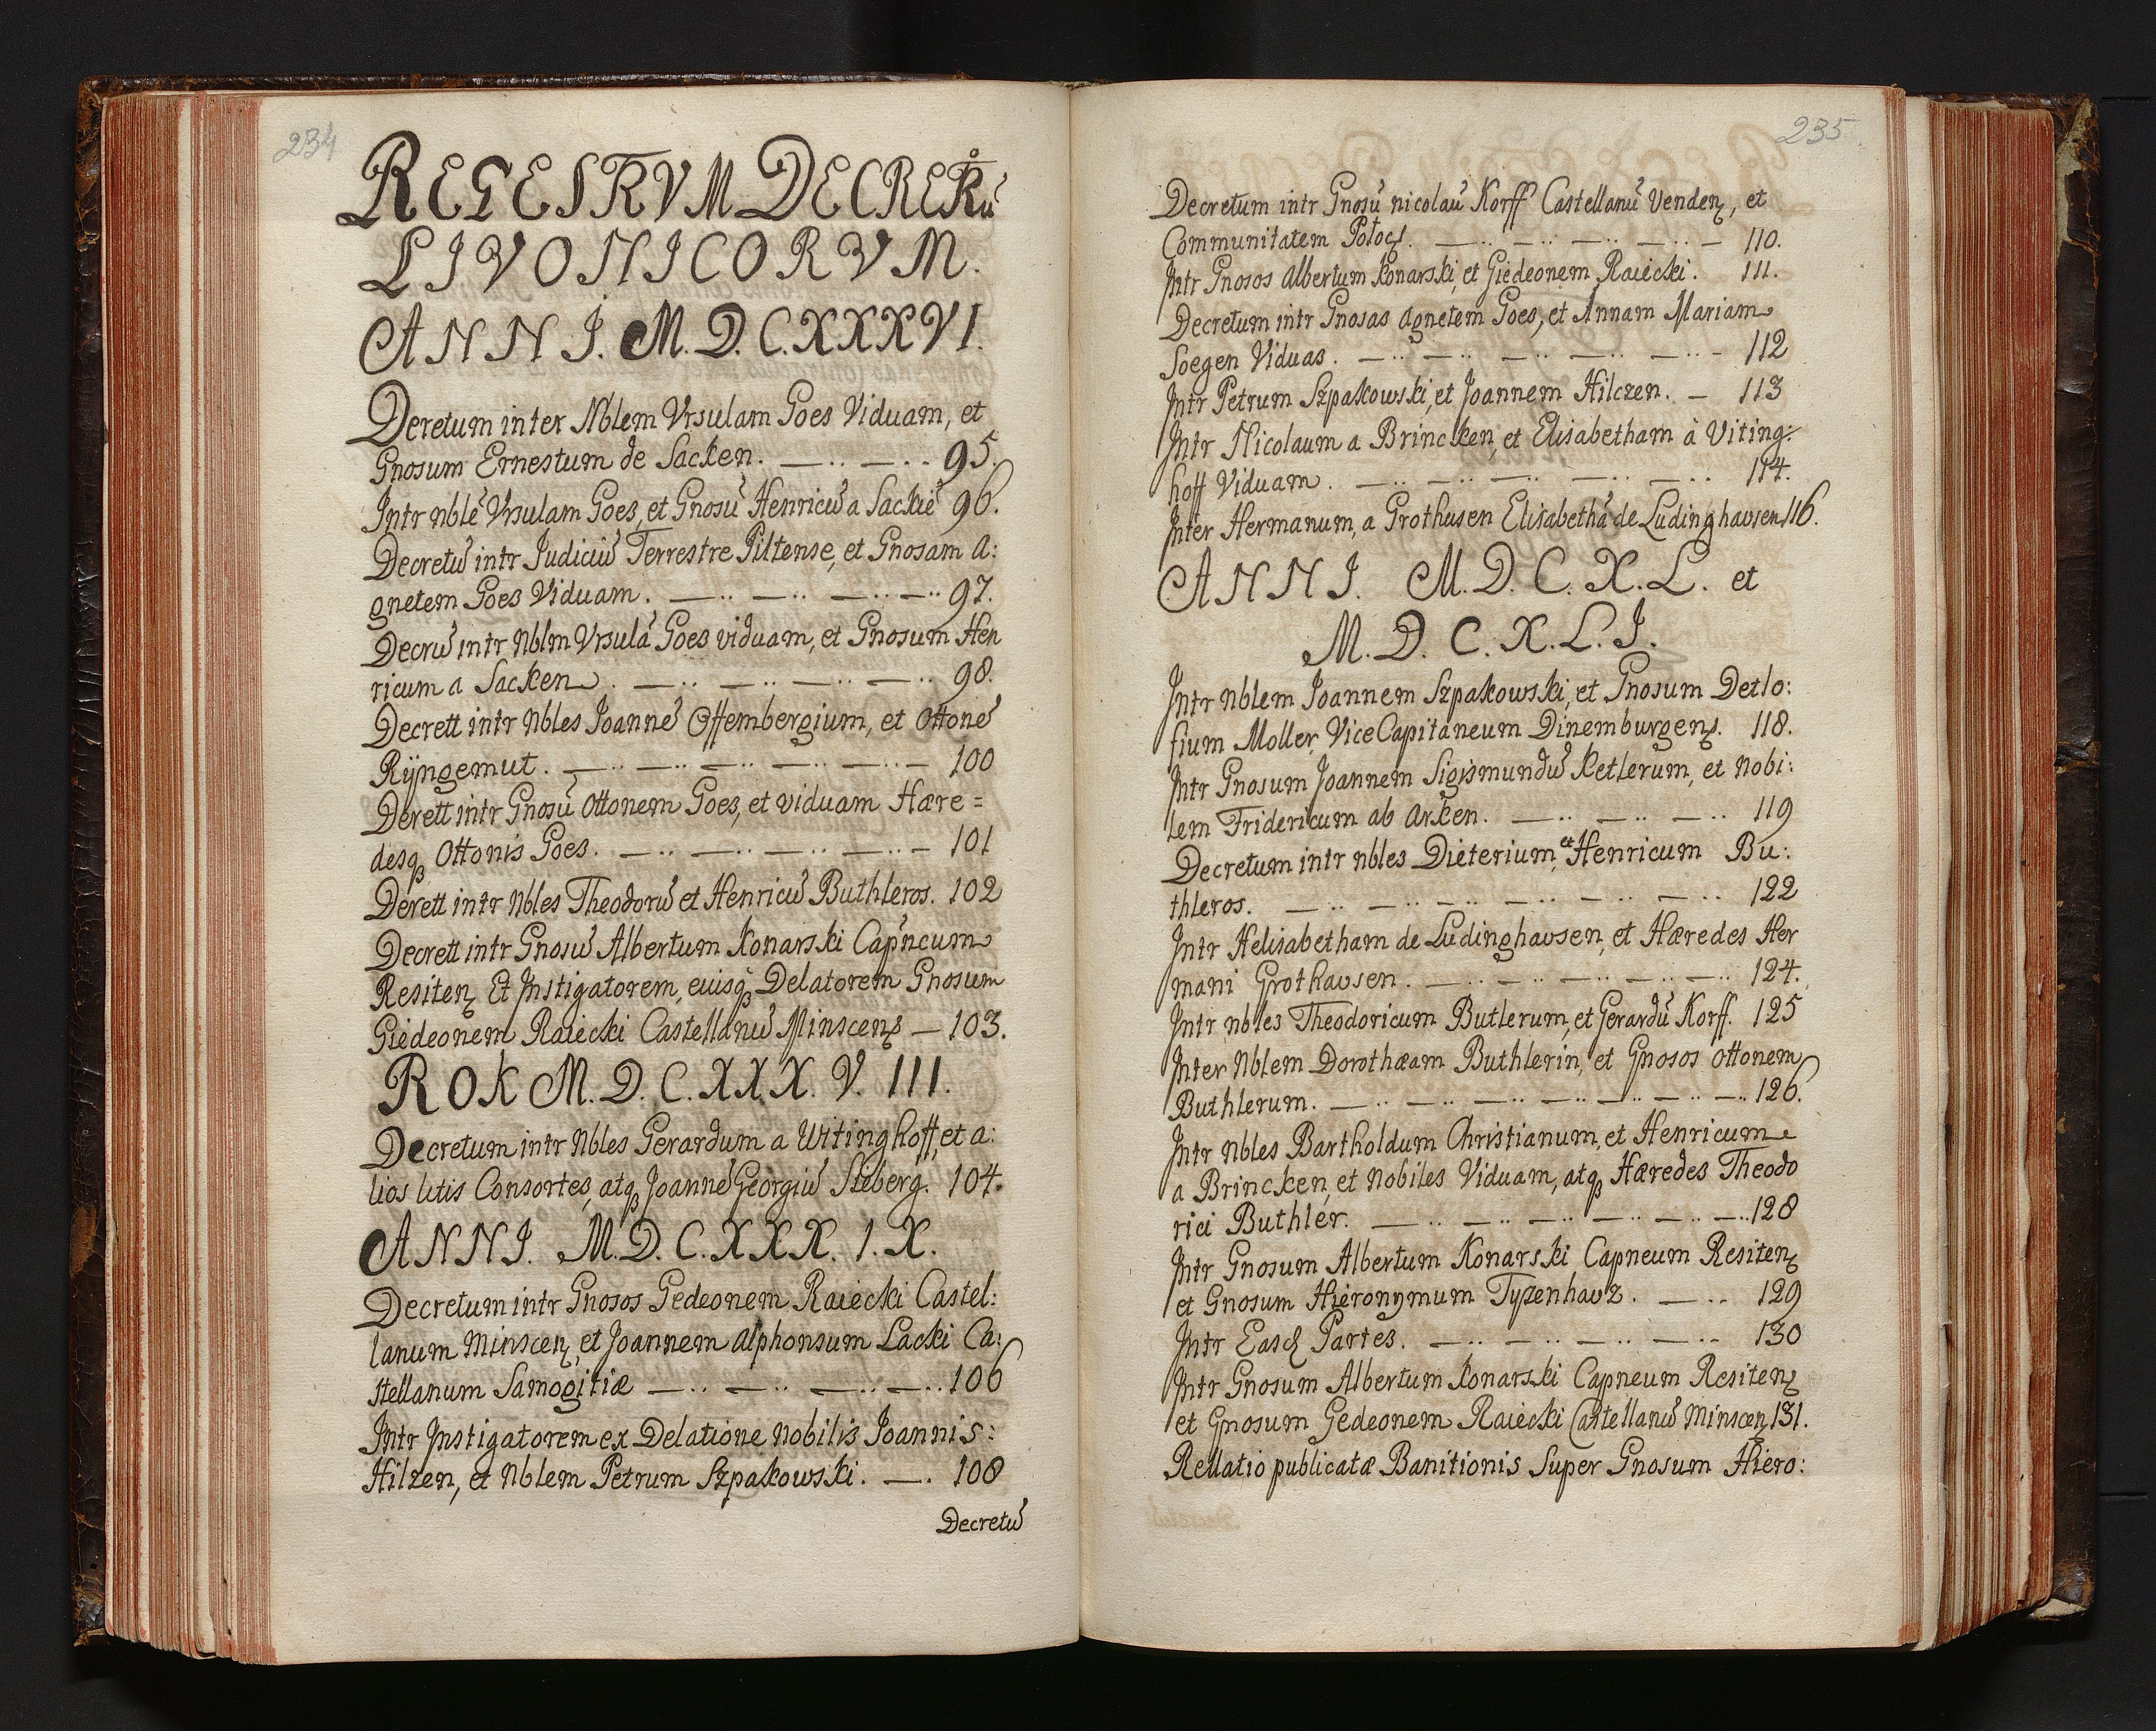 234
REGESTRVM DECRERů
LIVONICORVM.
ANNI. M. D. C. XXXVI.
Deretum inter Nblem Vrsulam Goes Viduam, et
Gnosum Ernestum de Sacken. — .. — .. 95.
Intr nblē Vrsulam Goes, et Gnosū Henricū a Sackiē 96.
Decretū intr Judiciū Terrestre Piltense, et Gnosam A:
gnetem Goes Viduam. — .. — .. — .. — .. 97.
Decrū intr Nblm Vrsulā Goes viduam, et Gnosum Hen
ricum a Sacken. — .. — .. — .. — .. 98.
Decrett intr Nbles Joannē Offembergium, et Ottonē
Rÿngemut. — .. — .. — .. — .. — .. — 100
Derett intr Gnosū Ottonem Goes, et viduam Hære=
desqꝫ Ottonis Goes. — .. — .. — .. — .. — 101
Derett intr Nbles Theodorū et Henricū Buthleros. 102
Decrett intr Gnosū Albertum Konarski Cap'neum
Resitenꝫ Et Instigatorem, euisqꝫ Delatorem Gnosum
Giedeonem Raiecki Castellanū Minscenꝫ — 103.
ROK M. D. C. X.X.X. V. III.
Decretum intr Nbles Gerardum a Witinghoff, et a:
lios litis Consortes, atqꝫ Joannē Georgiū Steberg. 104.
ANNI. M. D. C. XXX. I. X.
Decretum intr Gnosos Gedeonem Raiecki Castel:
lanum Minscenꝫ et Joannem Alphonsum Lacki Ca:
stellanum Samogitiæ — .. — .. — .. — .. 106
Intr Instigatorem ex Delatione Nobilis Joannis:
Hilzen, et Nblem Petrum Szpakowski. — . 108
Decretū
235
Decretum intr Gnosū nicolaū Korff Castellanū Vendenꝫ, et
Communitatem Polocꝫ. — .. — .. — .. — .. — 110.
Intr Gnosos Albertum Konarski, et Giedeonem Raiecki. 111.
Decretum intr Gnosas Agnetem Goes, et Annam Mariam
Soegen Viduas. — .. — .. — .. — .. — .. — 112
Intr Petrum Szpakowski, et Joannem Hilczen. — 113
Intr Nicolaum a Brincken, et Elisabetham à Viting:
hoff Viduam. — .. — .. — .. — .. — .. 114.
Inter Hermanum, a Grothusen Elisabethā de Ludinghausen 116.
ANNI. M. D. C. X. L. et
M. D. C. X. L. I.
Intr Nblem Joannem Szpakowski, et Gnosum Detlo:
fium Moller, Vice Capitaneum Dinemburgenꝫ. 118.
Intr Gnosum Joannem Sigismundū Ketlerum, et Nobi:
lem Fridericum ab Arken. — .. — .. — .. 119
Decretum intr nbles Dieterium, et Henricum Bu:
thleros. — .. — .. — .. — .. — .. — .. 122
Intr Helisabetham de Ludinghausen, et Hæredes Her
mani Grothausen. — .. — .. — .. — .. — .. 124.
Intr nbles Theodoricum Butlerum, et Gerardū Korff. 125
Inter Nblem Dorothæam Buthlerin, et Gnosos Ottonem
Buthlerum. — .. — .. — .. — .. — .. — .. — .. 126.
Intr Nbles Bartholdum Christianum, et Henricum
a Brincken, et Nobiles Viduam, atqꝫ Hæredes Theodo
rici Buthler. — .. — .. — .. — .. — .. — .. 128
Intr Gnosum Albertum Konarski Capneum Resitenꝫ
et Gnosum Hieronymum Tyzenhauz. — .. 129
Intr Easd Partes. — .. — .. — .. — .. — .. 130
Intr Gnosum Albertum Konarski Capneum Resitenꝫ
et Gnosum Gedeonem Raiecki Castellanū Minscenꝫ 131.
Rellatio publicatæ Banitionis Super Gnosum Hiero: